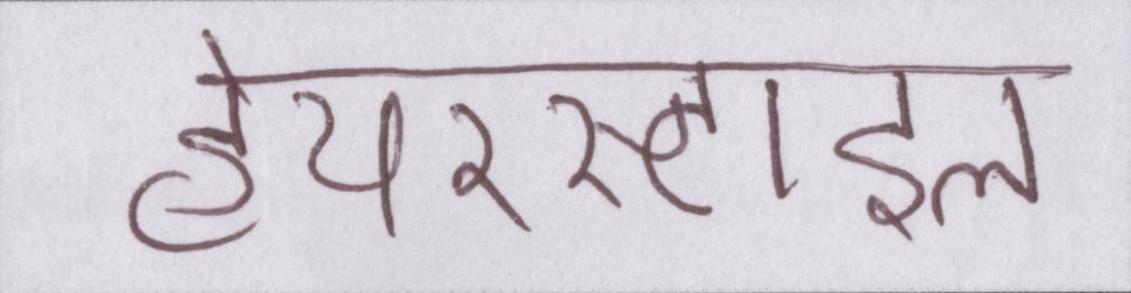 हेयरस्टाइल